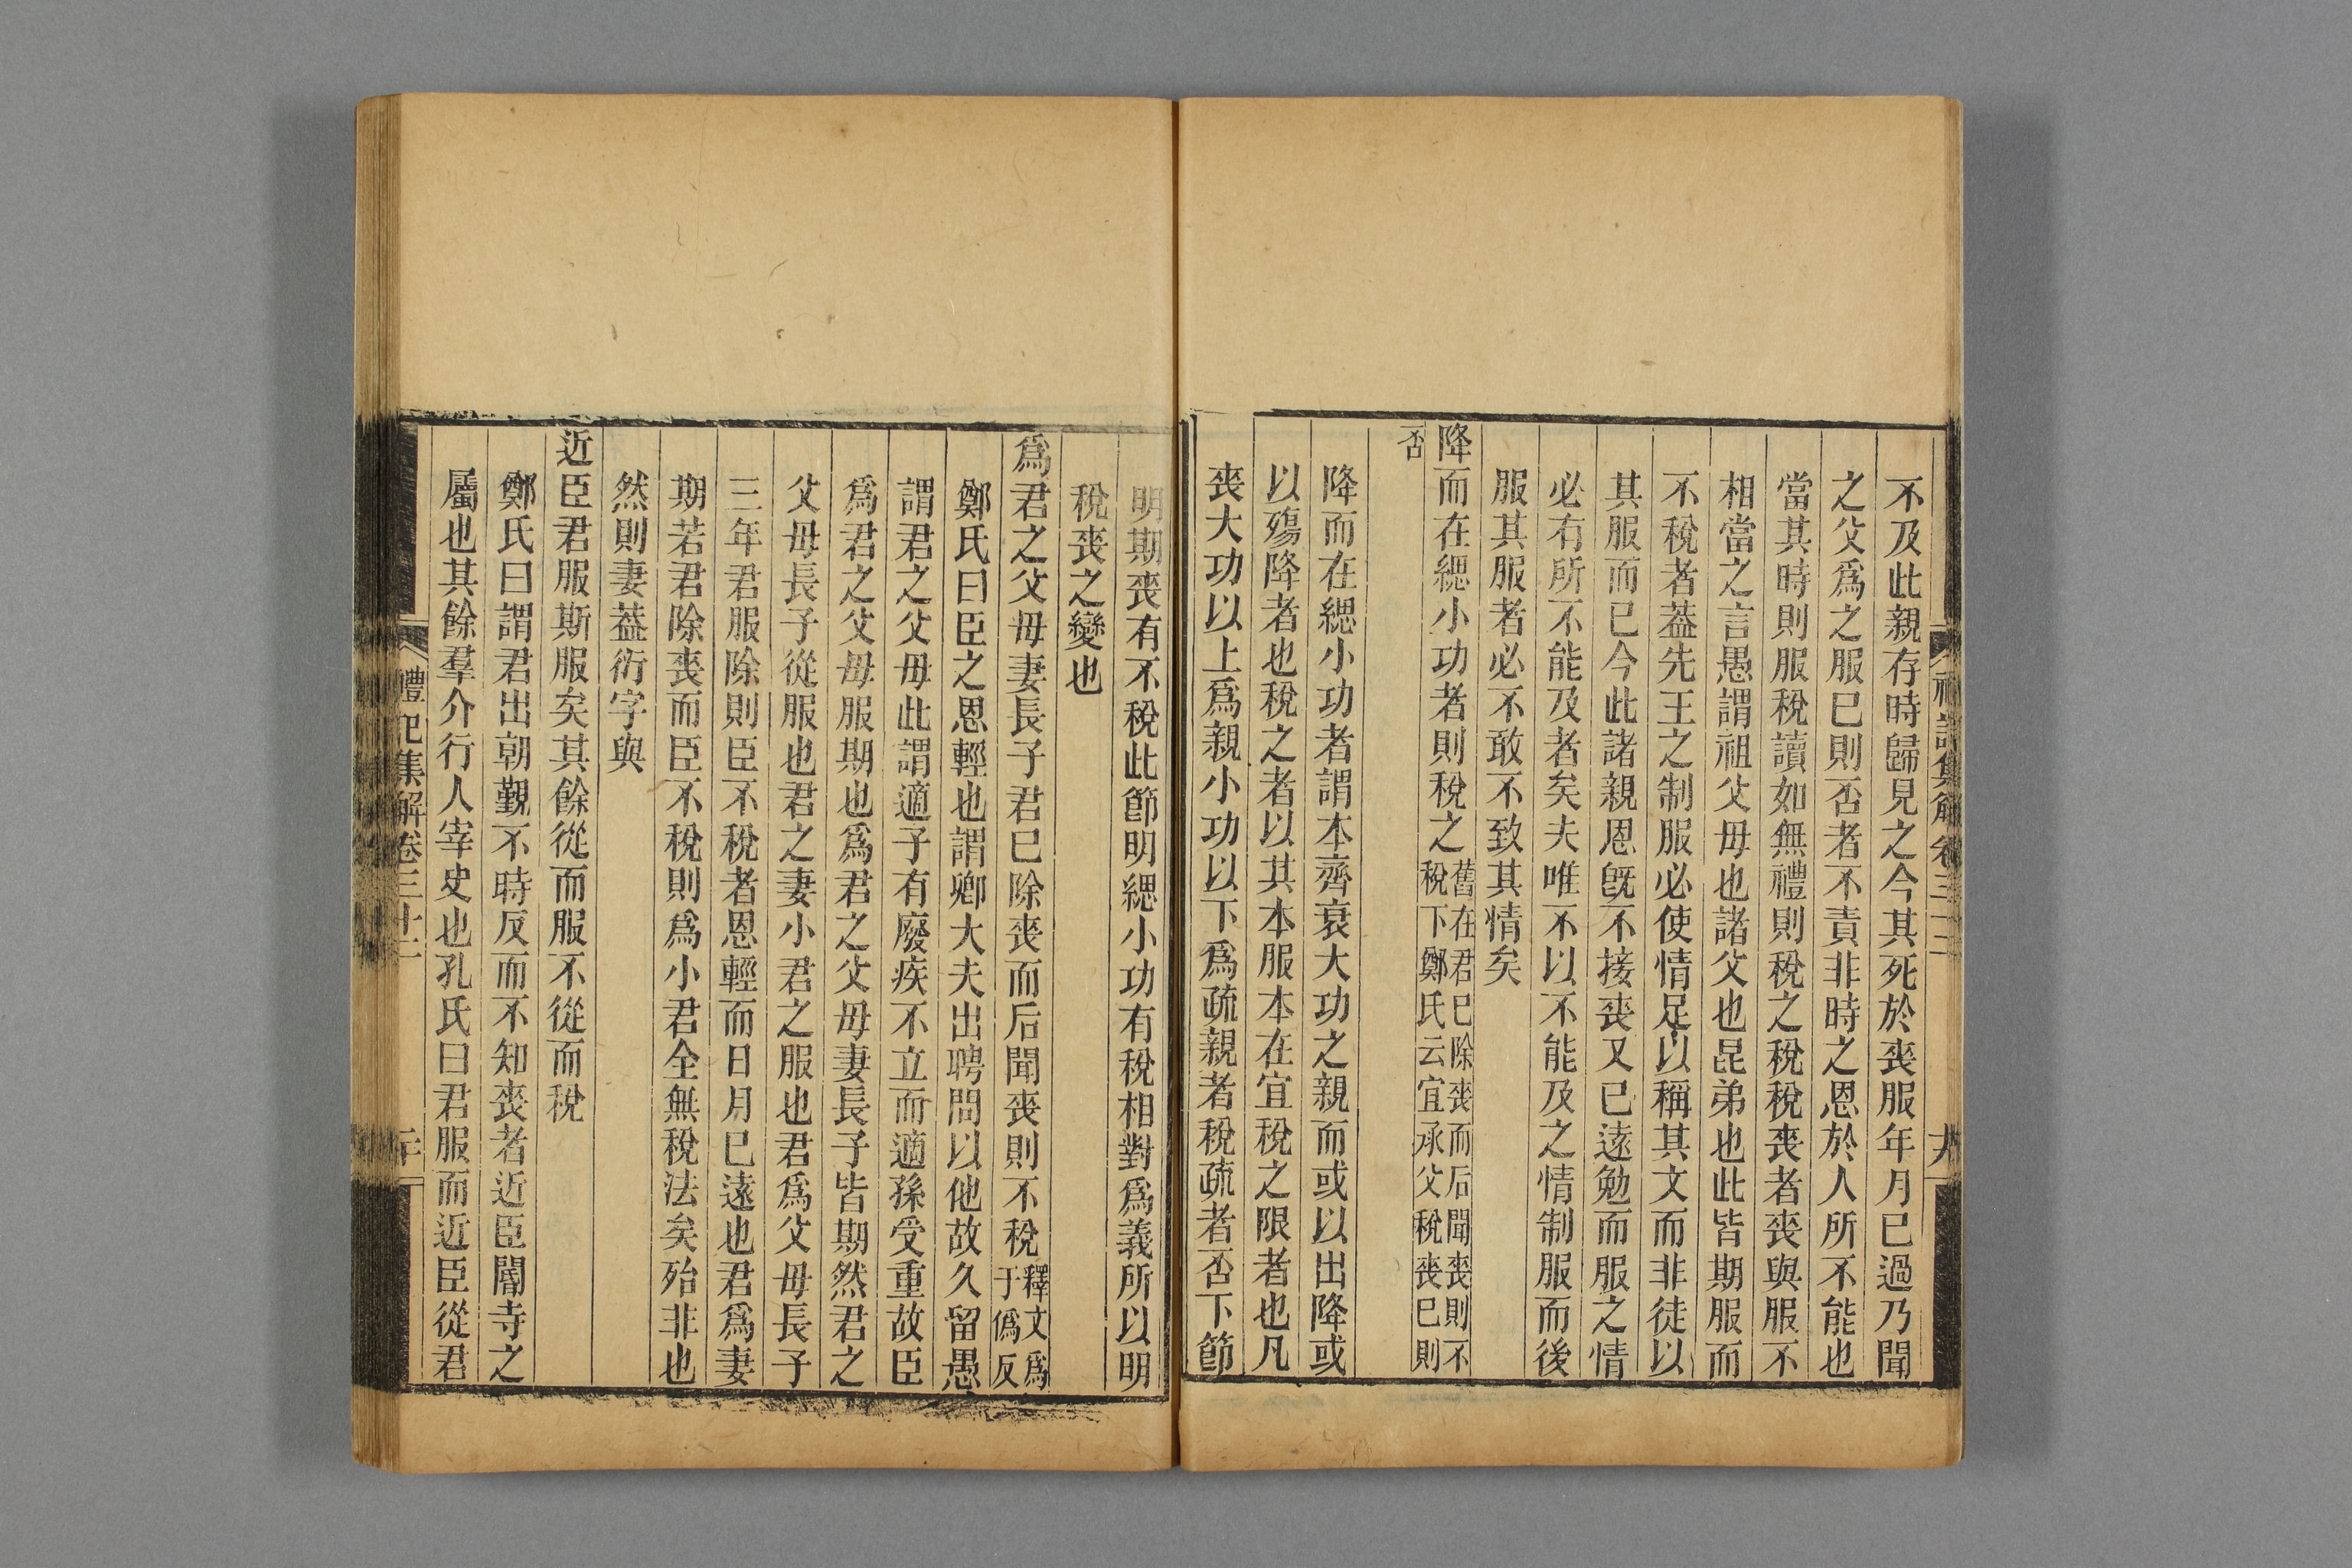 不及此親存時歸見之今其死於喪服年月已過乃聞
之父爲之服已則否者不責非時之恩於人所不能也
當其時則服稅讀如無禮則稅之稅稅喪者喪與服不
相當之言愚謂祖父母也諸父也昆弟也此皆期服而
不稅者葢先王之制服必使情足以稱其文而非徒以
其服而已今此諸親恩旣不接喪又已遠勉而服之情
必有所不能及者矣夫唯不以不能及之情制服而後
服其服者必不敢不致其情矣
降而在緦小功者則稅之
舊在君已除喪而后聞喪則不
稅下鄭氏云宜承父稅喪已則
否
降而在緦小功者謂本齊衰大功之親而或以出降或
以殤降者也稅之者以其本服本在宜稅之限者也凡
喪大功以上爲親小功以下爲疏親者稅疏者否下節
明期喪有不稅此節明緦小功有稅相對爲義所以明
稅喪之變也
爲君之父母妻長子君已除喪而后聞喪則不稅
釋文爲
于僞反
鄭氏曰臣之恩輕也謂卿大夫出聘問以他故久留愚
謂君之父母此謂適子有廢疾不立而適孫受重故臣
爲君之父母服期也爲君之父母妻長子皆期然君之
父母長子從服也君之妻小君之服也君爲父母長子
三年君服除則臣不稅者恩輕而日月已遠也君爲妻
期若君除喪而臣不稅則爲小君全無稅法矣殆非也
然則妻葢衍字與
近臣君服斯服矣其餘從而服不從而稅
鄭氏曰謂君出朝覲不時反而不知喪者近臣閽寺之
屬也其餘羣介行人宰史也孔氏曰君服而近臣從君
禮記集解卷三十二